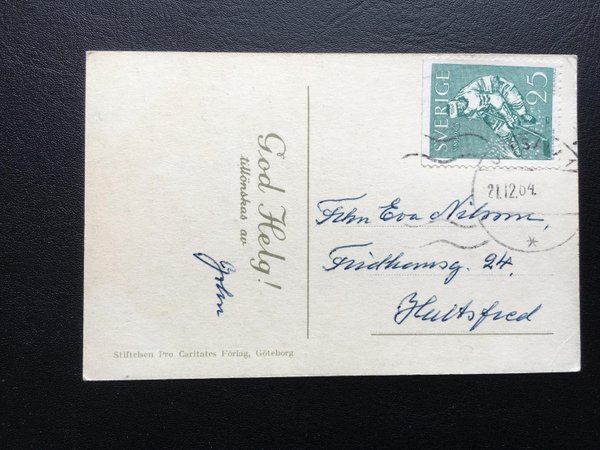 God Helg!
tillönskas av
John
Stiftelsen Pro Caritates Förlag, Göteborg
SVERIGE 25
21.12.64.
Frkn Eva Nilsson,
Fridhemsg. 24,
Hultsfred